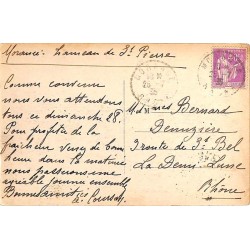 Morancé hameau de St Pierre
Comme convenu
nous vous attendons
tous ce dimanche 28.
Pour profiter de la
fraîcheur venez de bonne
heure dans la matinée
nous passerons une
agréable journée ensemble.
Bonnes amitiés
Mmes Bernard
3 route de St Bel
La Demi-Lune
Rhône